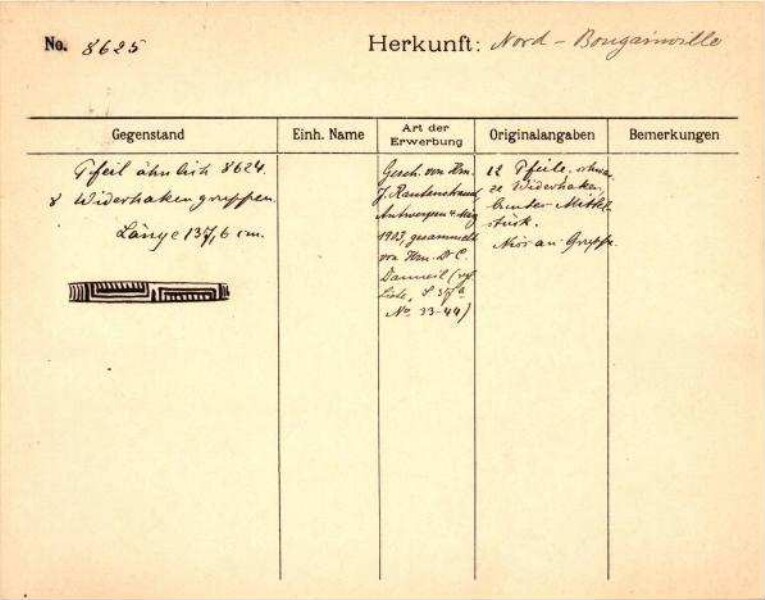 No. 8625
Herkunft: Nord-Bougainville
Gegenstand
Einh. Name
Art der
Erwerbung
Originalangaben
Bemerkungen
Pfeil ähnlich 8624.
8 Widerhakengruppen.
Länge 137,6 cm.
Gesch. von Hrn.
J. Rautenstrauch,
Antwerpen 4. Mai
1903, gesammelt
von Hrn. Dr C.
Danneil (vgl.
Liste, S. 37a
No. 33-44)
12 Pfeile, schwar-
ze Widerhaken,
bunter Mittel-
stück.